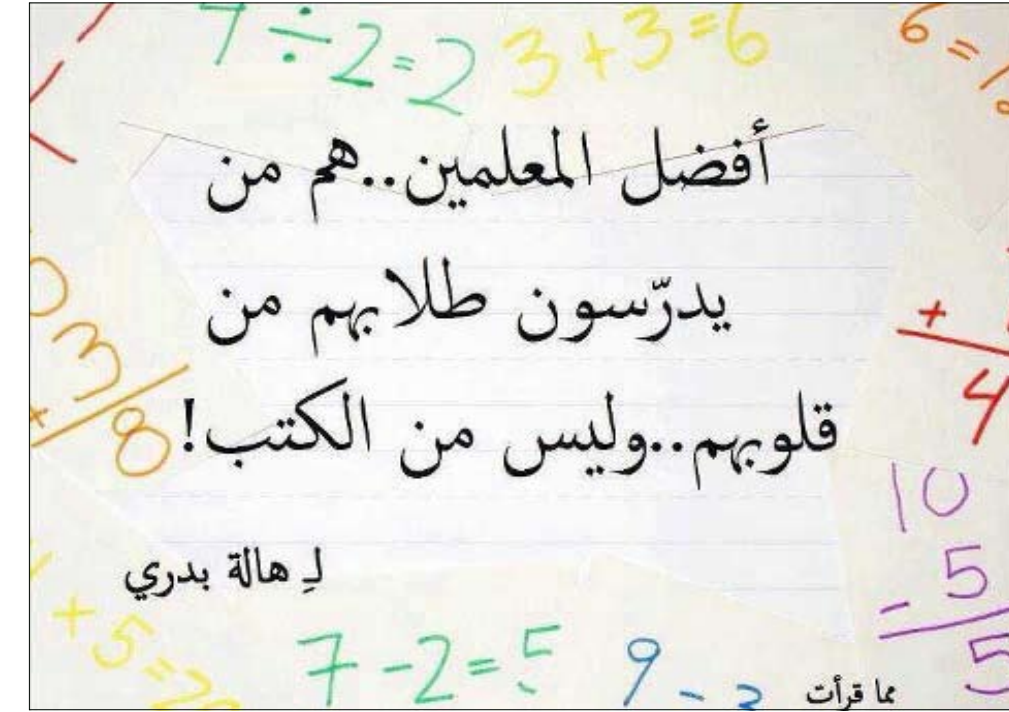 7 ÷ 2 = 2
3 + 3 = 6
6 =
أفضل المعلمين..هم من
يدرّسون طلابهم من
قلوبهم..وليس من الكتب!
لـِ هالة بدري
3
8
+
4
10
- 5
5
+ 5 =
7 - 2 = 5
9 -
مما قرأت